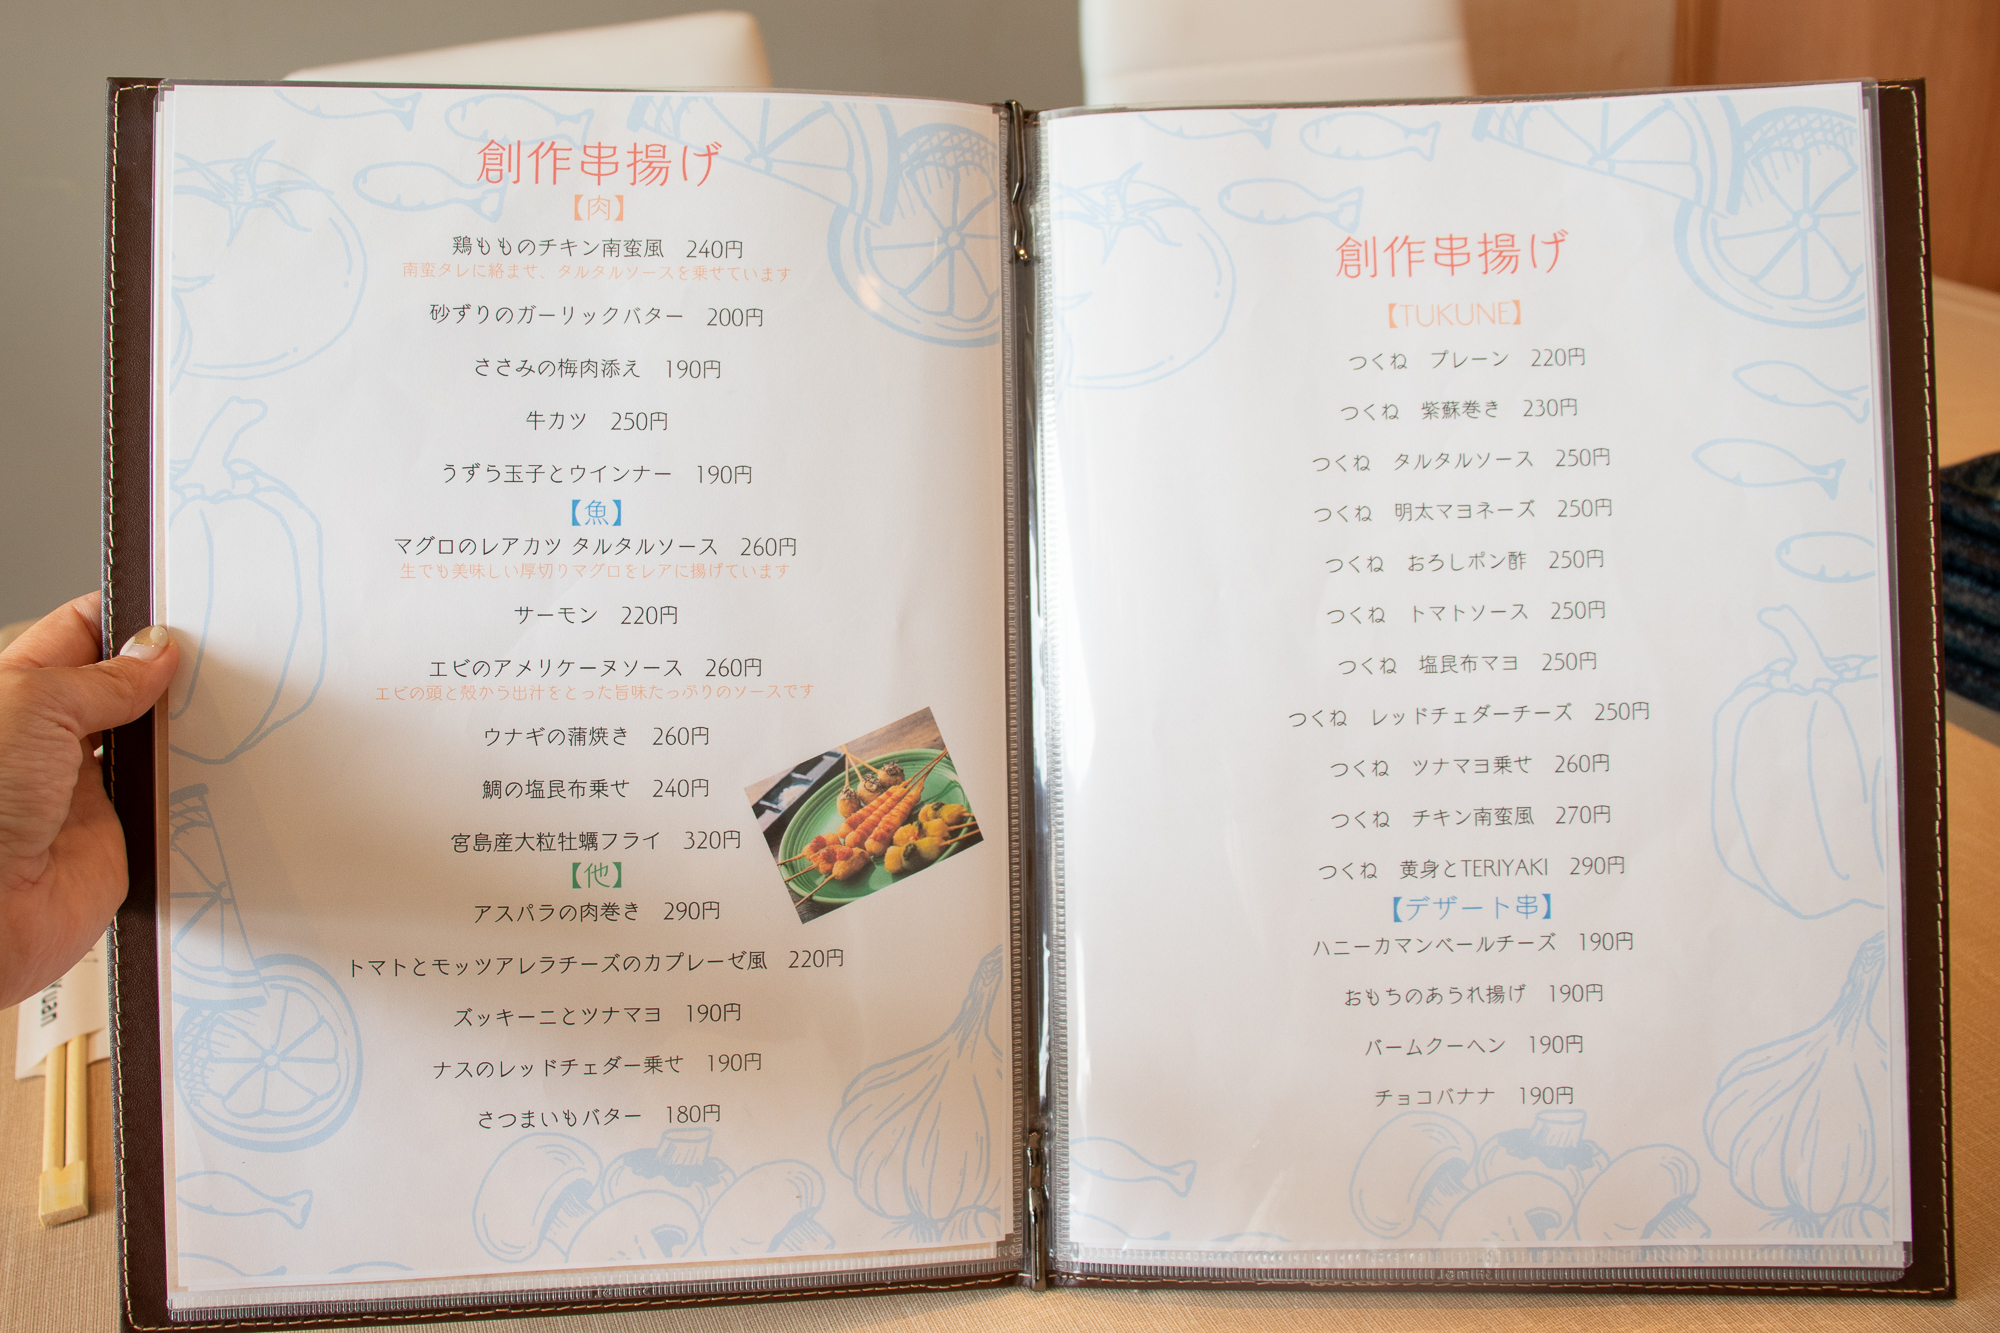 創作串揚げ
【肉】
鶏もものチキン南蛮風 240円
南蛮タレに絡ませ、タルタルソースを乗せています
砂ずりのガーリックバター 200円
ささみの梅肉添え 190円
牛カツ 250円
うずら玉子とウインナー 190円
【魚】
マグロのレアカツ タルタルソース 260円
生でも美味しい厚切りマグロをレアに揚げています
サーモン 220円
エビのアメリケーヌソース 260円
エビの頭と殻から出汁をとった旨味たっぷりのソースです
ウナギの蒲焼き 260円
鯛の塩昆布乗せ 240円
宮島産大粒牡蠣フライ 320円
【他】
アスパラの肉巻き 290円
トマトとモッツアレラチーズのカプレーゼ風 220円
ズッキーニとツナマヨ 190円
ナスのレッドチェダー乗せ 190円
さつまいもバター 180円
創作串揚げ
【TUKUNE】
つくね プレーン 220円
つくね 紫蘇巻き 230円
つくね タルタルソース 250円
つくね 明太マヨネーズ 250円
つくね おろしポン酢 250円
つくね トマトソース 250円
つくね 塩昆布マヨ 250円
つくね レッドチェダーチーズ 250円
つくね ツナマヨ乗せ 260円
つくね チキン南蛮風 270円
つくね 黄身とTERIYAKI 290円
【デザート串】
ハニーカマンベールチーズ 190円
おもちのあられ揚げ 190円
バームクーヘン 190円
チョコバナナ 190円